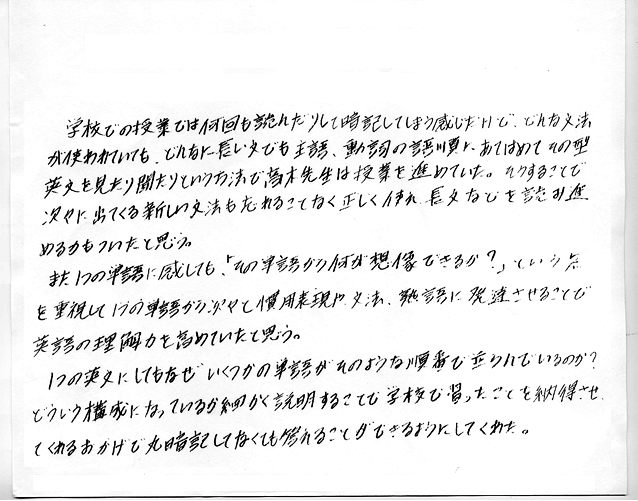 学校での授業では何回も読んだりして暗記してしまう感じだけで、どんな文法
が使われていても、どんなに長い文でも主語、動詞の語順に、あてはめてその型
英文を見たり聞いたりという方法で高木先生は授業を進めていた。そうすることで
次々に出てくる新しい文法も忘れることなく正しく使え、長文などを読み進
める力もついたと思う。
また1つの単語に感しても、「その単語から何が想像できるか？」という点
を重視して1つの単語から次々と慣用表現や文法、熟語に発達させることで
英語の理解力を高めていたと思う。
1つの英文にしてもなぜいくつかの単語がそのような順番で並られているのか？
どういう構成になっているか細かく説明することで学校で習ったことを納得させ
てくれるおかげで丸暗記してなくても答えることができるようにしてくれた。